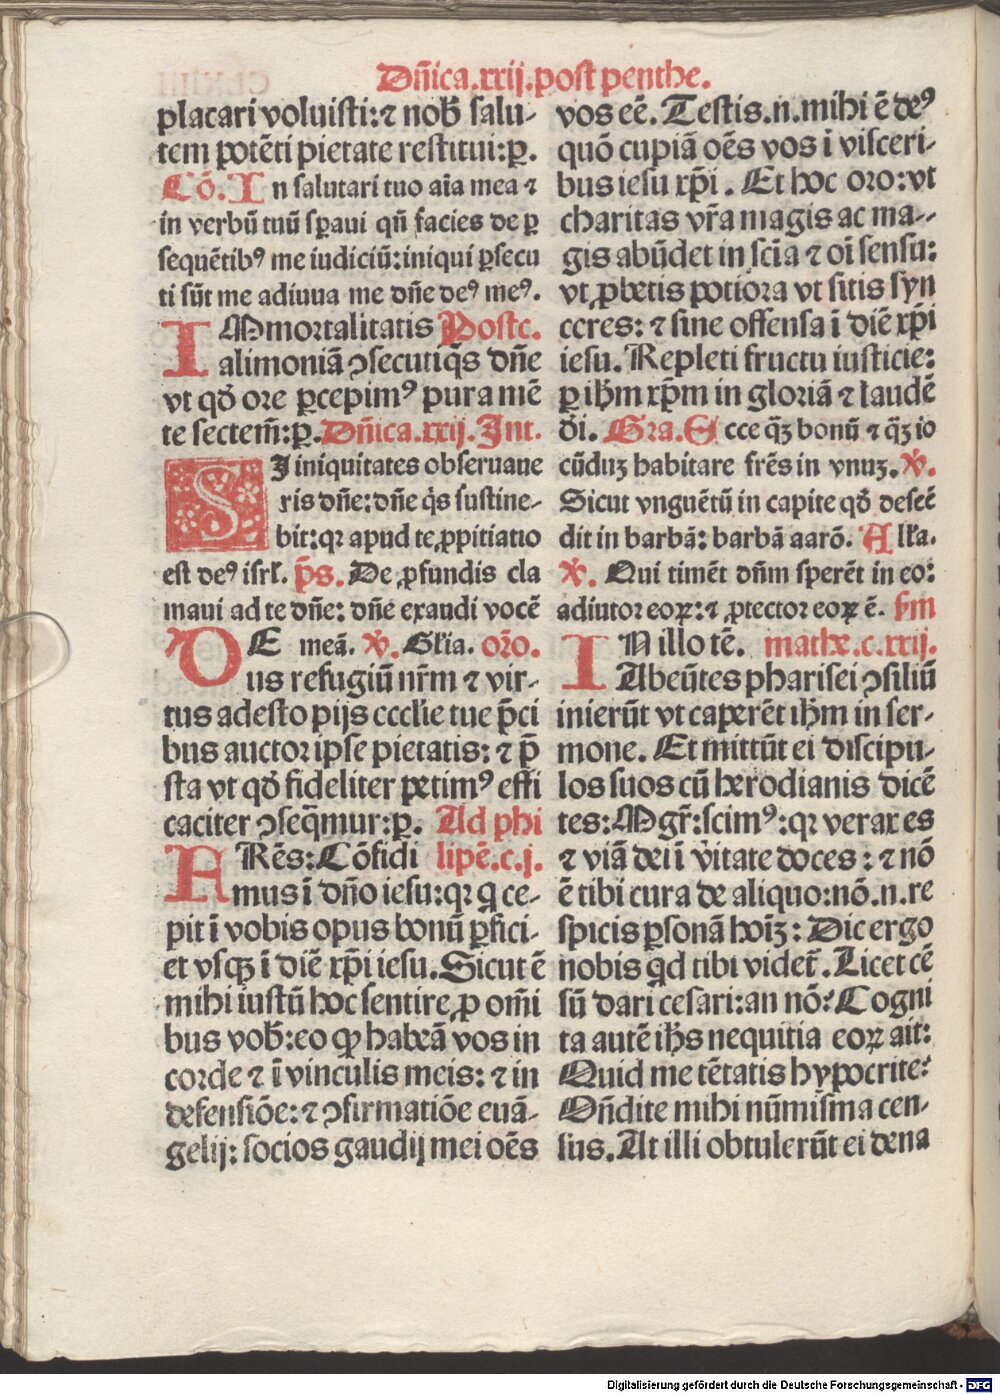 Dn̄ica.xxij.post penthe.
placari voluisti:⁊ nob̄ salu-
tem potēti pietate restitui:ꝑ.
Cō. In salutari tuo aīa mea ⁊
in verbū tuū sꝑaui qn̄ facies de ꝑ
sequētibꝰ me iudiciū:iniqui ꝑsecu
ti sūt me adiuua me dn̄e deꝰ meꝰ.
IMmortalitatis Postc.
alimoniā ↄsecuti q̄s dn̄e
vt qđ ore ꝑcepimꝰ pura mē
te sectem̄:ꝑ. Dn̄ica.xxij. Int.
SI iniquitates obseruaue
ris dn̄e:dn̄e q̇s sustine-
bit:qꝛ apud te ꝓpitiatio
est deꝰ isrł. p̄s. De ꝓfundis cla
maui ad te dn̄e: dn̄e exaudi vocē
DE meā. ℣. Głia. or̄o.
us refugiū nr̄m ⁊ vir-
tus adesto pijs eccłie tue p̄ci
bus auctor ipse pietatis: ⁊ p̄
sta vt qđ fideliter petimꝰ effi
caciter ↄseq̄mur:ꝑ. Ad phi
FRēs:Cōfidi lipē.c.j.
mus ī dn̄o iesu:qꝛ q̇ ce-
pit ī vobis opus bonū ꝑfici-
et vsqꝫ ī diē xp̄i iesu. Sicut ē
mihi iustū hoc sentire ꝓ om̄i
bus vob̄:eo ꝙ habeā vos in
corde ⁊ ī vinculis meis: ⁊ in
defensiōe:⁊ ↄfirmatiōe euā-
gelij: socios gaudij mei oēs
vos eē. Testis.n.mihi ē deꝰ
quō cupiā oēs vos ī visceri-
bus iesu xp̄i. Et hoc oro:vt
charitas vr̄a magis ac ma-
gis abūdet in sciā ⁊ oī sensu:
vt ꝓbetis potiora vt sitis syn
ceres: ⁊ sine offensa ī diē xp̄i
iesu. Repleti fructu iusticie:
ꝑ ih̄m xp̄m in gloriā ⁊ laudē
đi. Gra. Ecce q̄ꝫ bonū ⁊ q̄ꝫ io
cūduꝫ habitare fr̄es in vnuꝫ. ℣.
Sicut vnguētū in capite qđ descē
dit in barbā: barbā aarō. Alła.
℣. Qui timēt dn̄m sperēt in eo:
adiutor eoꝝ:⁊ ꝓtector eoꝝ ē. s̄m
IN illo tē. mathe.c.xxij.
Abeūtes pharisei ↄsiliū
inierūt vt caperēt ih̄m in ser-
mone. Et mittūt ei discipu-
los suos cū herodianis dicē
tes:Mgr̄:scimꝰ:qꝛ verax es
⁊ viā dei ī v̇itate doces: ⁊ nō
ē tibi cura de aliquo:nō.n.re
spicis ꝑsonā hoīꝫ: Dic ergo
nobis q̇d tibi videt̄. Licet cē
sū dari cesari:an nō? Cogni
ta autē ih̄s nequitia eoꝝ ait:
Quid me tētatis hypocrite?
Ostn̄dite mihi nūmisma cen-
sus. At illi obtulerūt ei dena
Digitalisierung gefördert durch die Deutsche Forschungsgemeinschaft - DFG